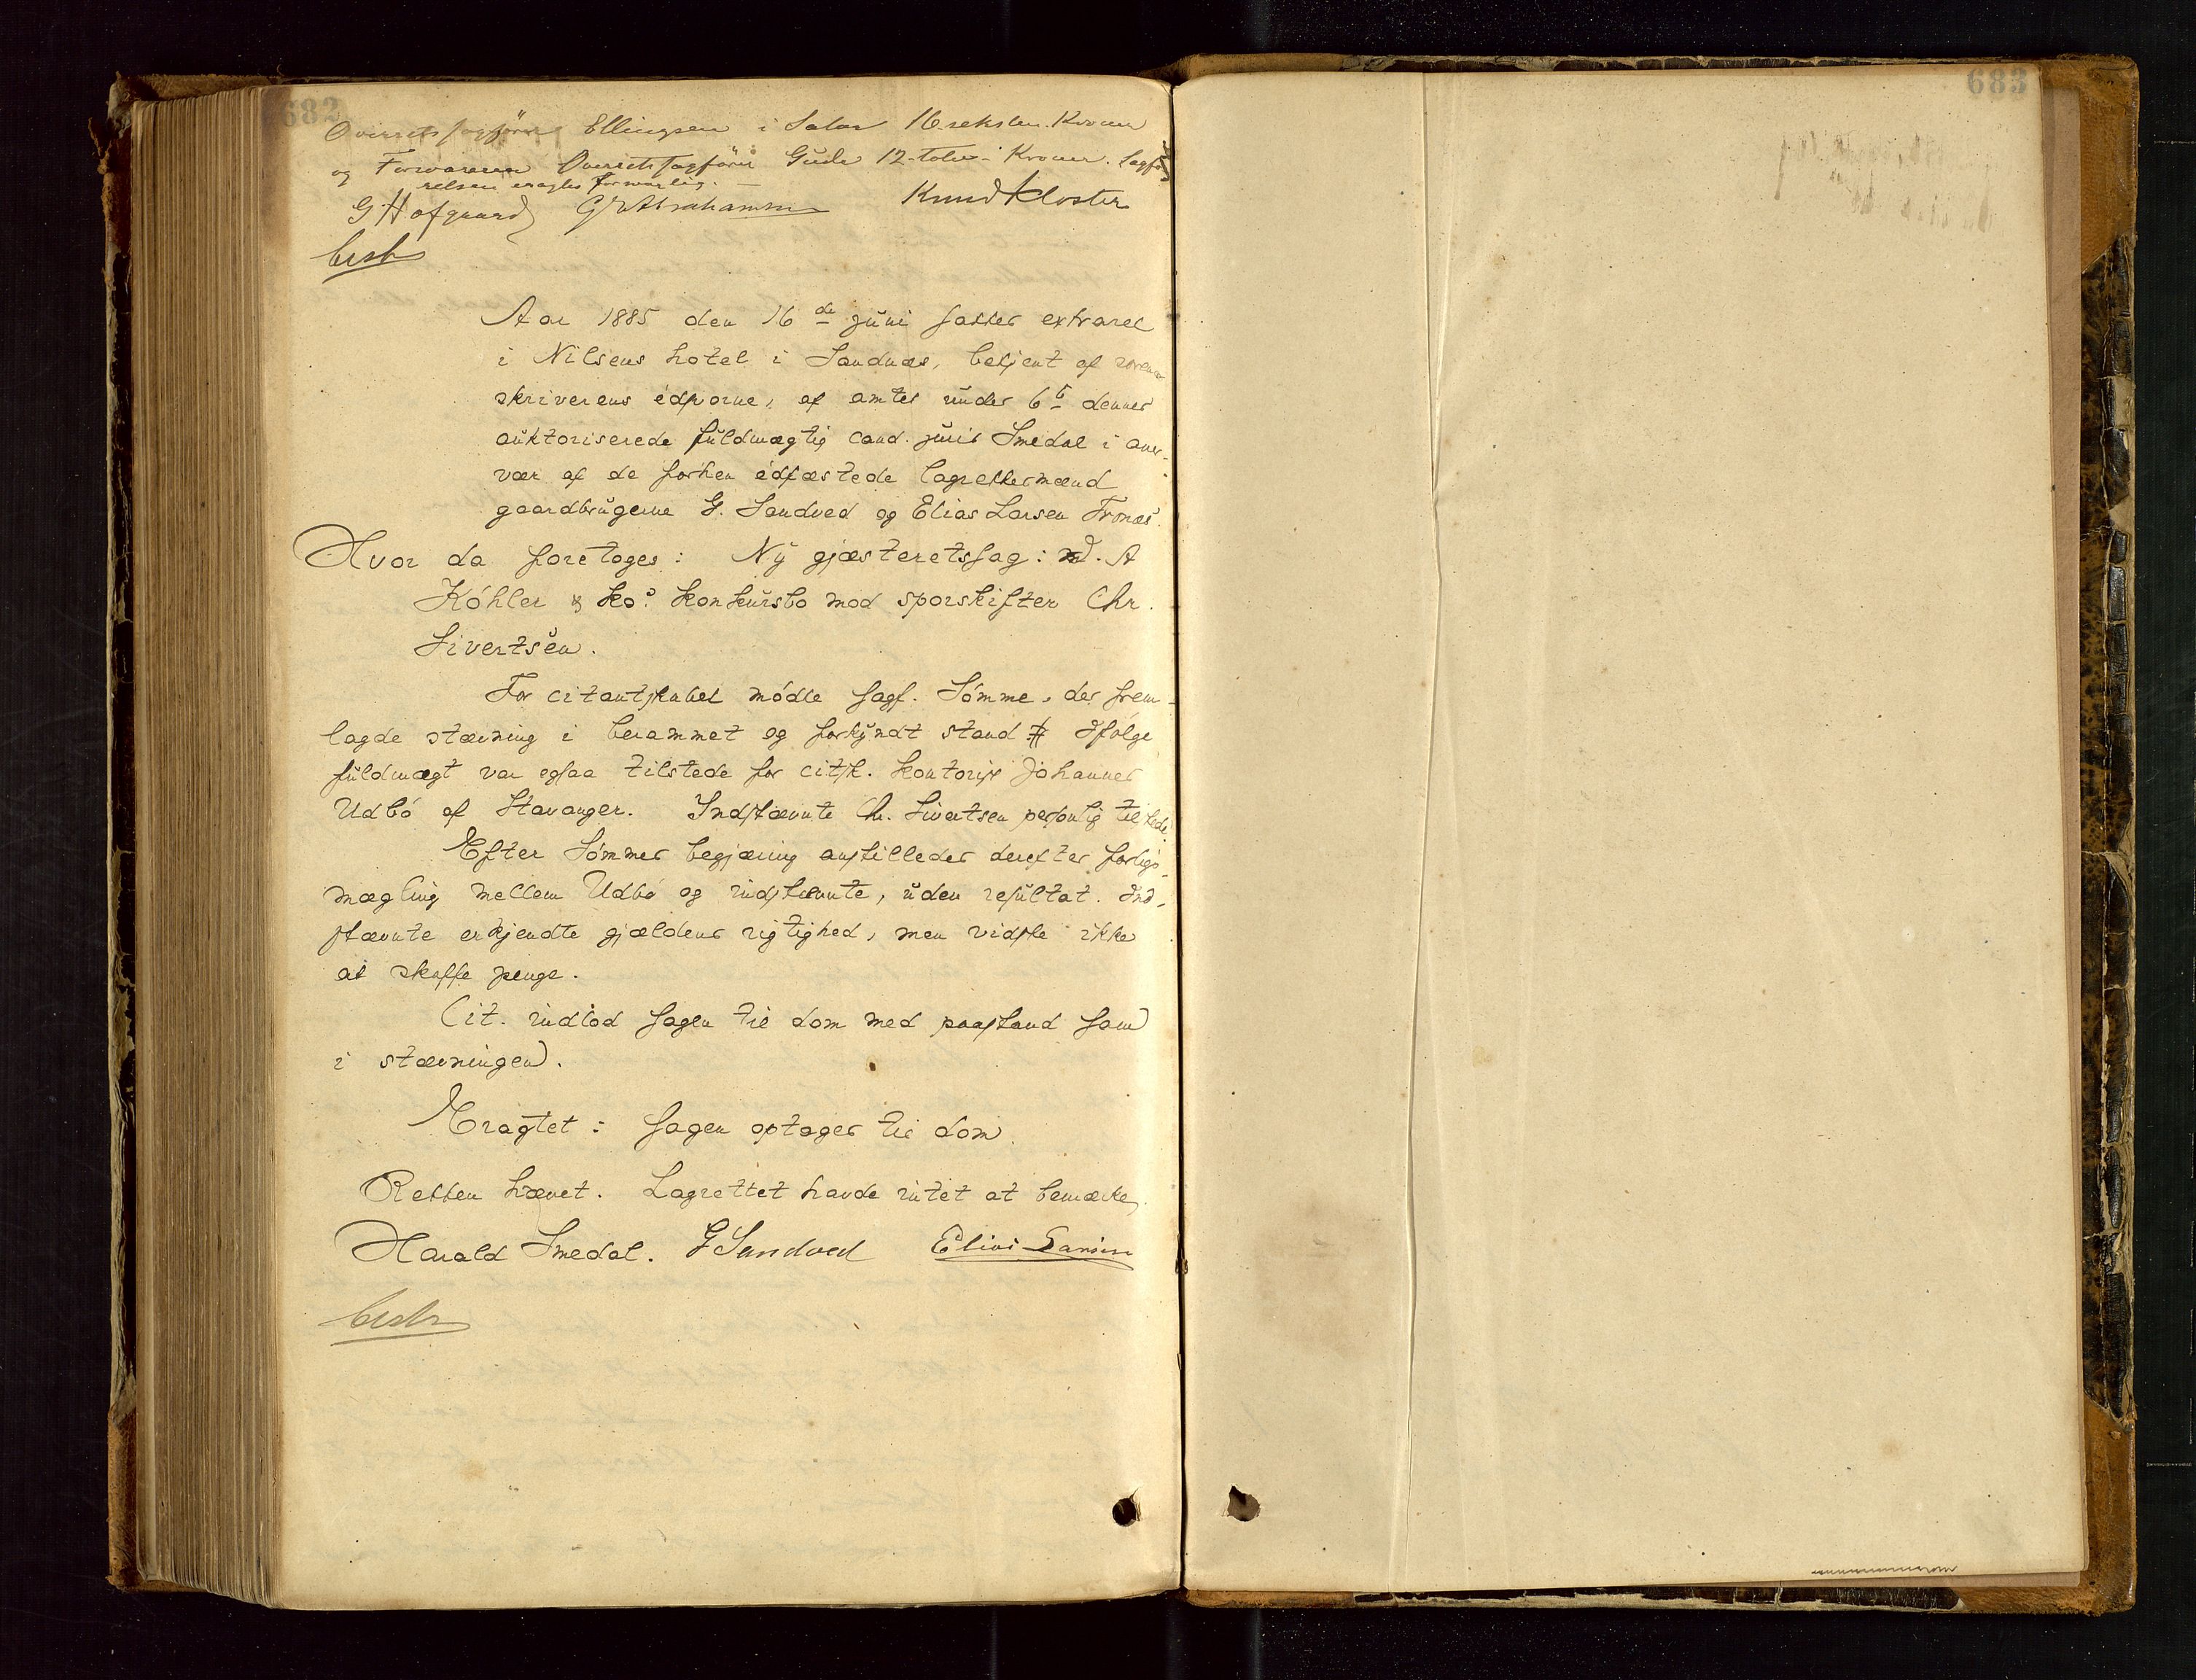 682
Overretssagfører Ellingsen i Salær 16-seksten-Kroner
og Forsvareren Overretssagfører Gude 12-tolv-Kroner. Sagfø-
relsen eragtes forsvarlig.
G Hofgaard G Abrahamsen Knud Kloster
besk
Aar 1885 den 16de juni sattes extraret
i Nilsens hotel i Sandnæs, betjent af soren-
skriverens edsvorne, af amtet under 6te dennes
auktoriserede fuldmægtig cand. juris Smedal i over-
vær af de forhen edfæstede lagrettesmænd
gaardbrugerne G. Sandved og Elias Larsen Tronæs.
Hvor da foretoges: Ny gjæsteretssag: A
Köhler & Ko's konkursbo mod sporskifter Chr.
Sivertsen.
For citantskabet mødte sagf. Sømme, der frem-
lagde stævning i berammet og forkyndt stand # Ifølge
fuldmagt var ogsaa tilstede for citsk. kontorist Johannes
Udbø af Stavanger. Indstævnte Chr. Sivertsen personlig tilstede.
Efter Sømmes begjæring anstilledes derefter forligs-
mægling mellem Udbø og indstævnte, uden resultat. Ind-
stævnte erkjendte gjældens rigtighed, men vidste ikke
at skaffe penge.
Cit. indlod sagen til dom med paastand som
i stævningen.
Eragtet: Sagen optages til dom.
Retten hævet. Lagrettet havde intet at bemærke
Harald Smedal. G Sandved Elias Larsen
besk
683